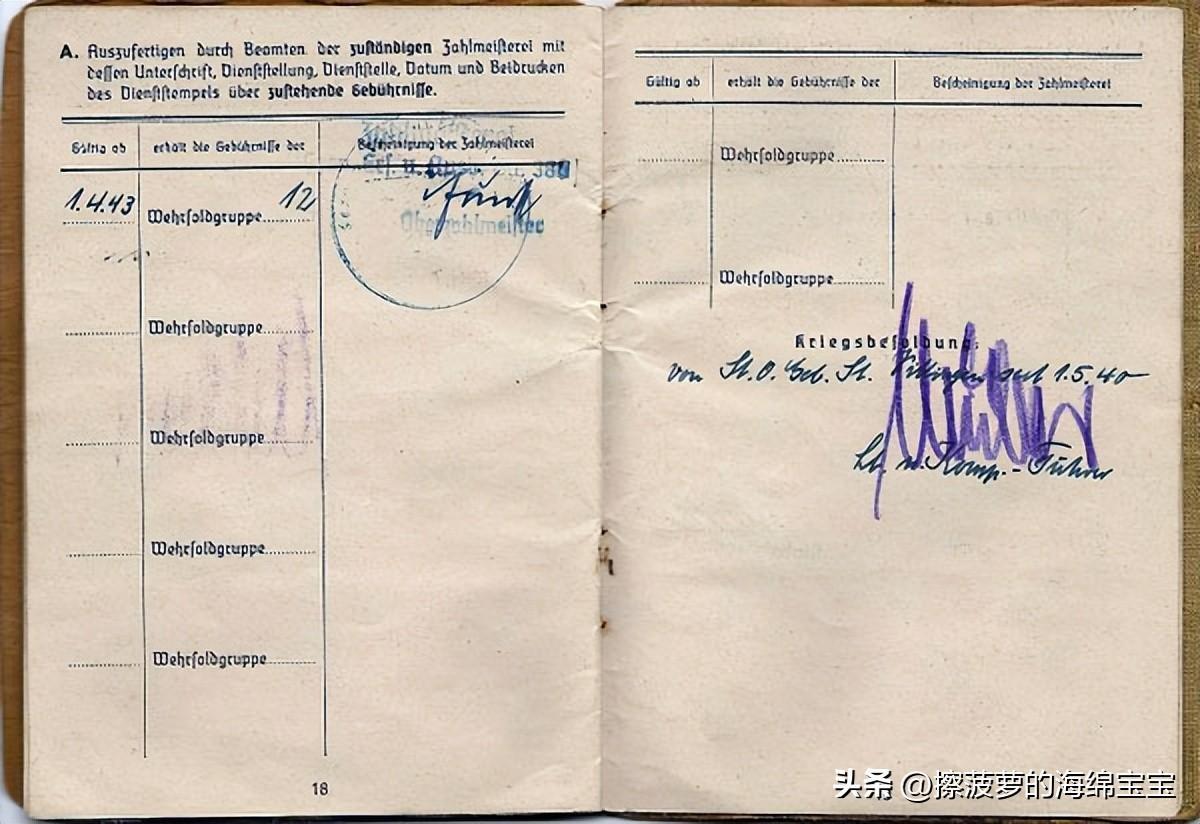 A. Auszufertigen durch Beamten der zuständigen Zahlmeisterei mit
dessen Unterschrift, Dienststellung, Dienststelle, Datum und Beidrucken
des Dienststempels über zustehende Gebührnisse.
Gültig ab erhält die Gebührnisse der Bescheinigung der Zahlmeisterei
1.4.43 Wehrsoldgruppe 12
Oberzahlmeister
Wehrsoldgruppe
Wehrsoldgruppe
Wehrsoldgruppe
Wehrsoldgruppe
18
Gültig ab erhält die Gebührnisse der Bescheinigung der Zahlmeisterei
Wehrsoldgruppe
Wehrsoldgruppe
Kriegsbesoldung:
von St. O. Geb. St. seit 1.5.40
Lt. u. Komp.-Führer
头条 @擦菠萝的海绵宝宝